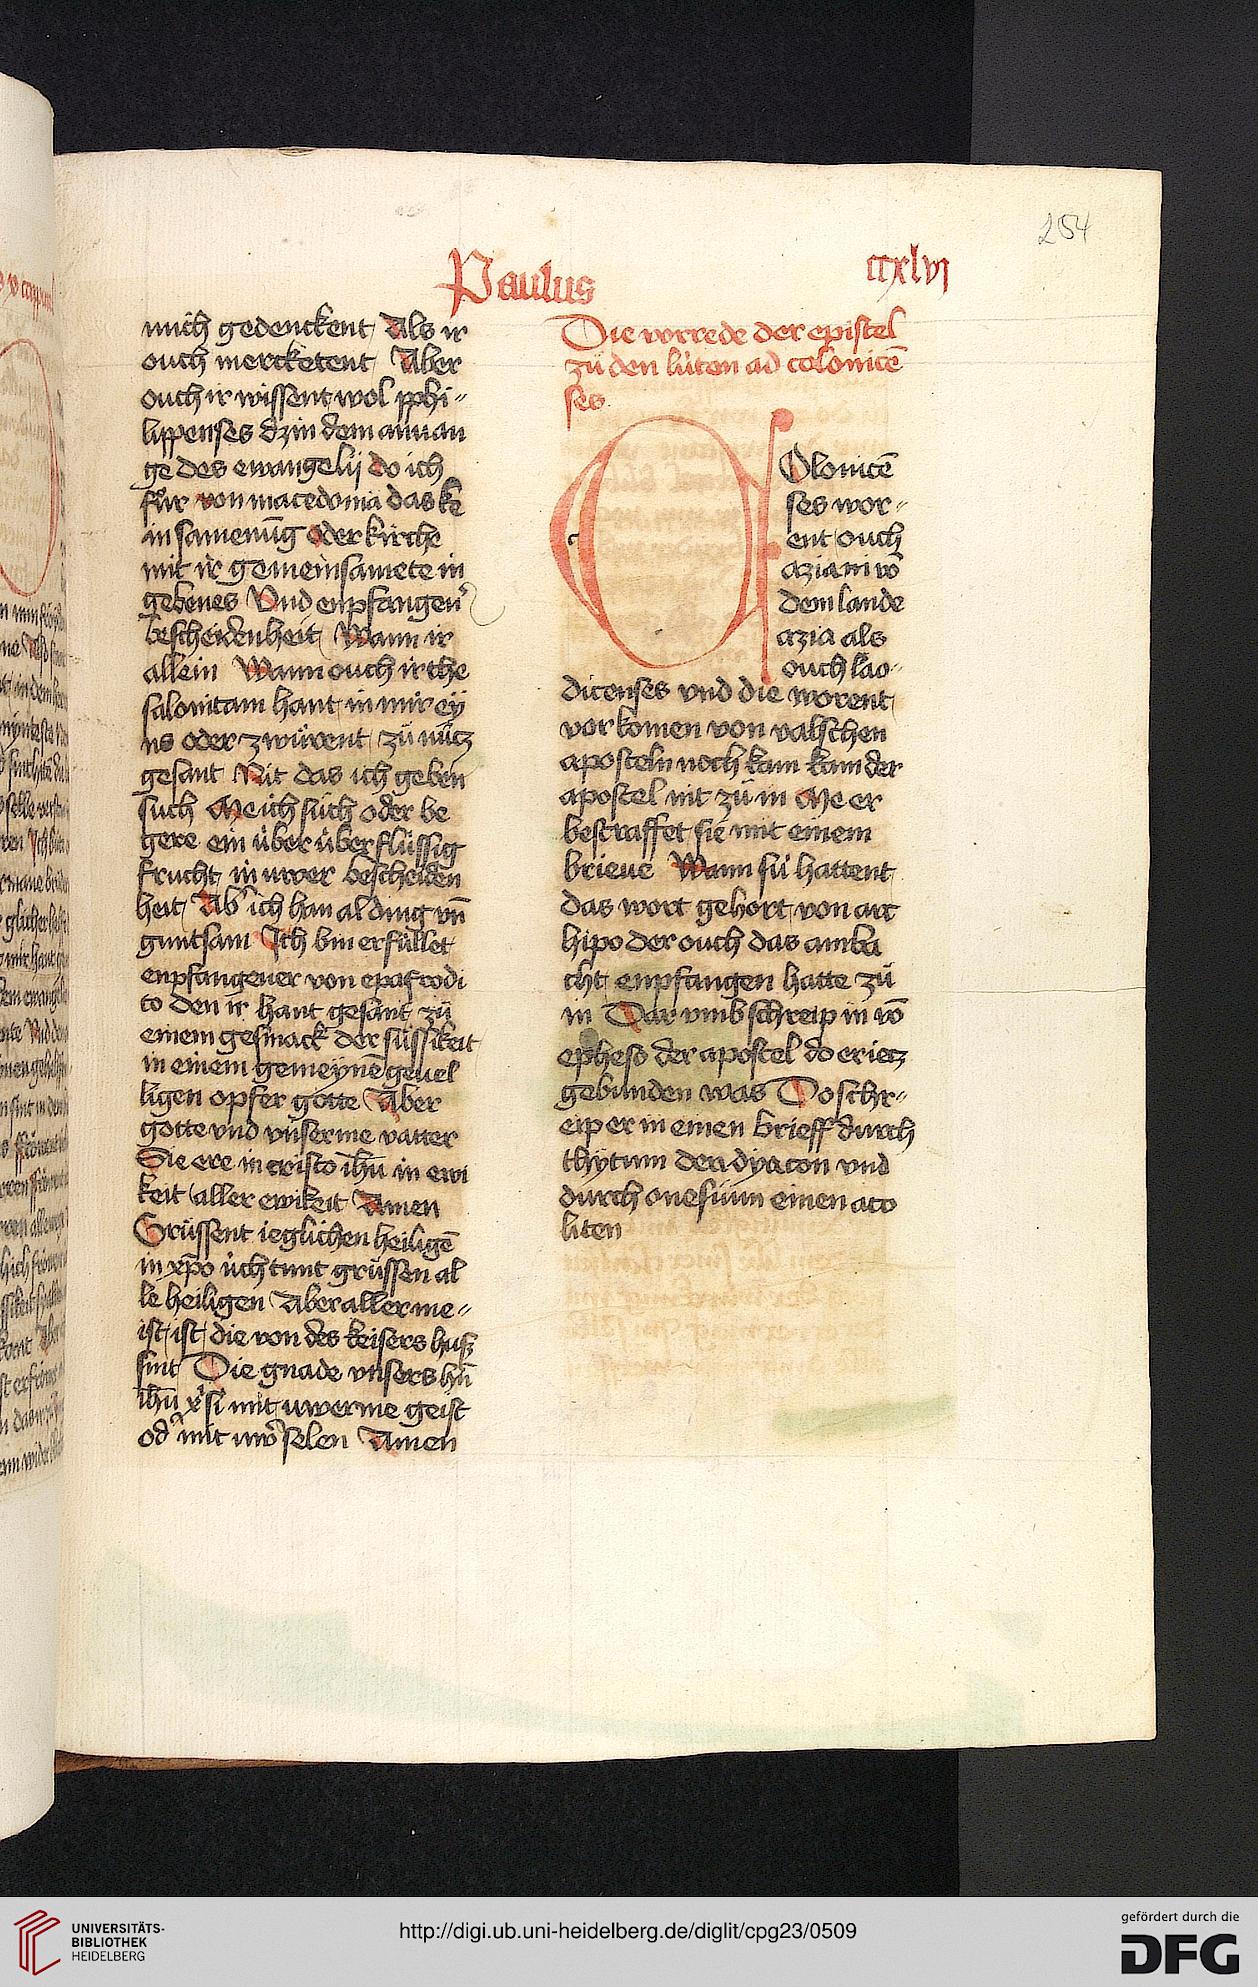 254
Paulus
ccxlvj
mich gedenckent / Als ir
ouch merckètent / Aber
ouch ir wissent wol pphi-
lippenses dz in dem anuan
ge des ewangelij do ich
fůr von macedonia das ke
in samenūg oder kirche
mit ir gemeinsamete in
gebenes Vnd enpfangen
bescheidenheit / Wann ir
allein Wann ouch ir the
salonicam hant / in mir ey
ns oder zwürent / zü nücz
gesant Nit das ich geben
such Me ich süch oder be
gere ein über überflüssig
frucht / in uwer bescheiden
heit / Ab' ich han al ding vn̄
gnutsam Ich bin erfüllet
enpfangener von epafrodi
to den ir hant gesant zü
einem gesmack der süssikeit
in einem gemeynē geuel
ligen opfer gotte / Aber
gotte vnd vnserme vatter
Sie ere in cristo ihū in ewi
keit / aller ewikeit Amen
Grüssent ieglichen heiligē
in xp̄o üch tunt grüssen al
le heiligen / Aber aller me-
ist / ist / die von des keisers huß
sint Die gnade vnsers hn̄
ihū x' si mit uwerme geist
od' mit uw' selen Amen
Die vorrede der epistel
zü den lüten ad colonicē
ses
C Olonicē
ses wor-
ent / ouch
aziani vō
dem lande
azia als
ouch lao-
dicenses vnd die worent
vor komen von valschen
aposteln noch kam kam der
apostel nit zü in Me er
bestraffet sie mit einem
brieue Wann sü hattent
das wort gehort / von arc
hipo der ouch das amba
cht enpfangen hatte zü
in Dar vmb schreip in vō
epheso der apostel do er iecz
gebunden was Do schr-
eip er in einen brieff durch
thytum den dyacon vnd
durch onesium einen aco
liten
UNIVERSITÄTS-
BIBLIOTHEK
HEIDELBERG
http://digi.ub.uni-heidelberg.de/diglit/cpg23/0509
gefördert durch die
DFG